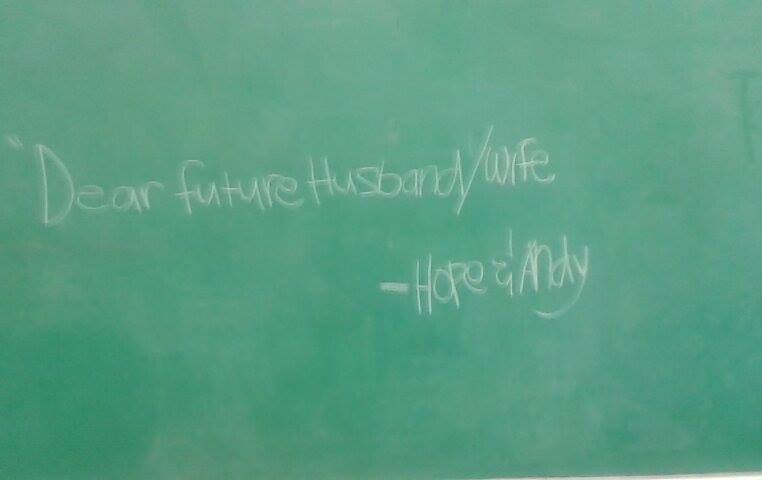 "Dear future Husband/Wife
- Hope & Andy